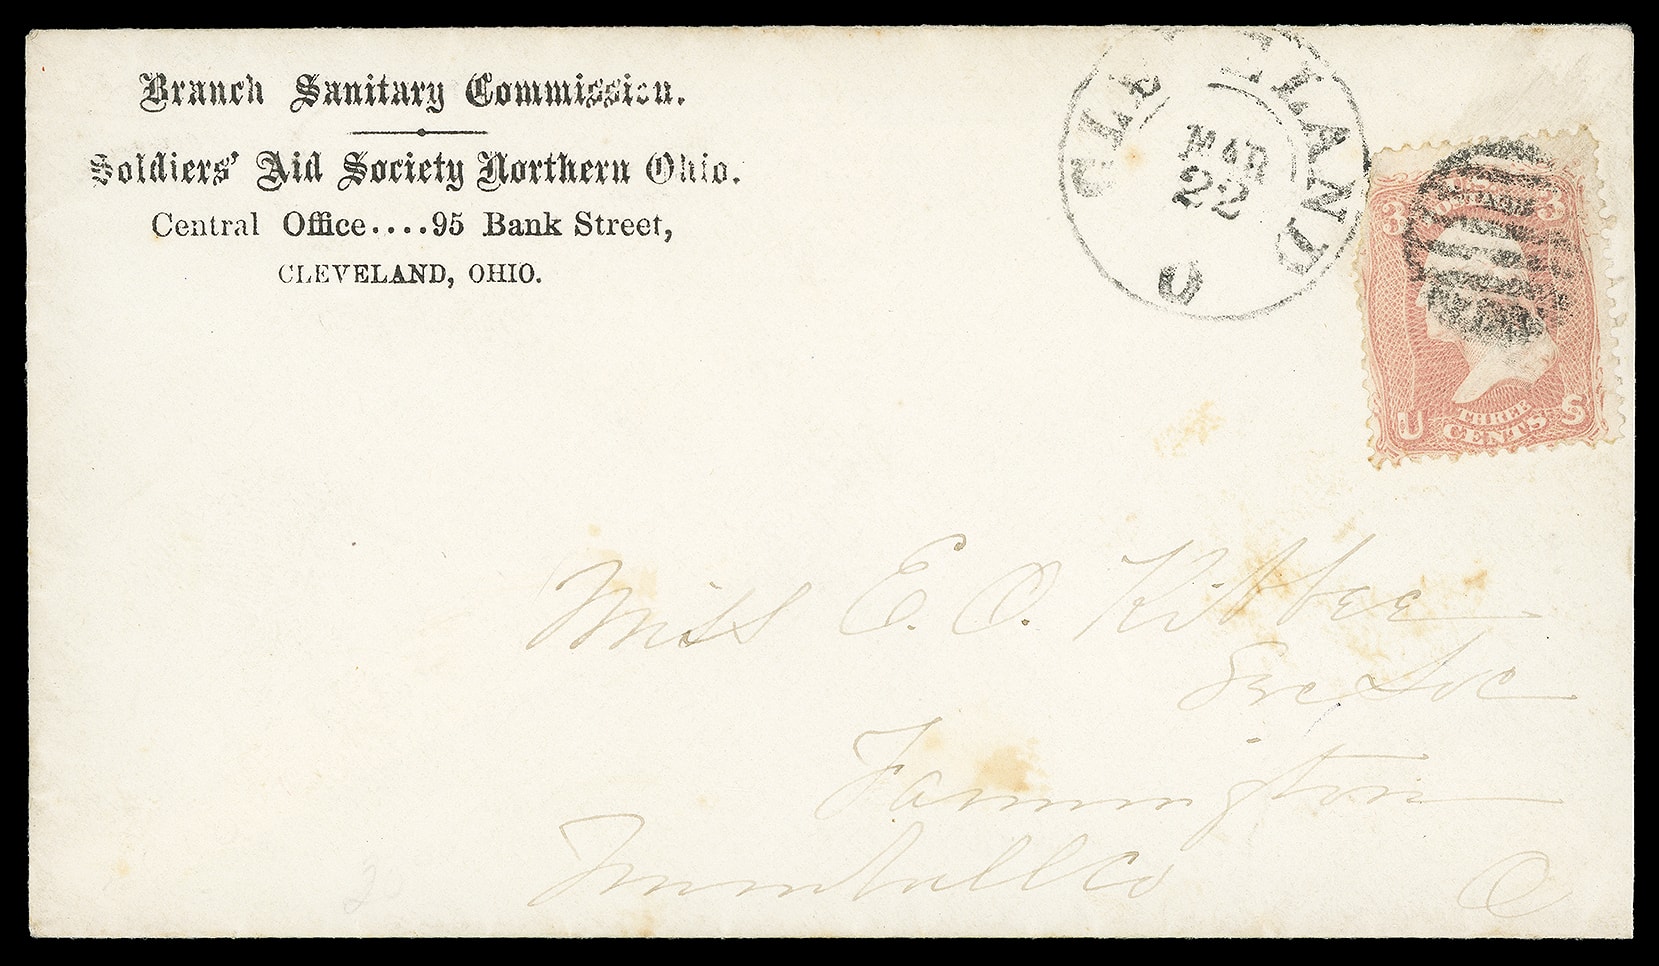 Branch Sanitary Commission.
Soldiers' Aid Society Northern Ohio.
Central Office....95 Bank Street,
CLEVELAND, OHIO.
CLEVELAND
MAR
22
O
3 3
U THREE S
CENTS
Miss E. O. Kibbee
Sec Soc
Farmington
Trumbull Co O